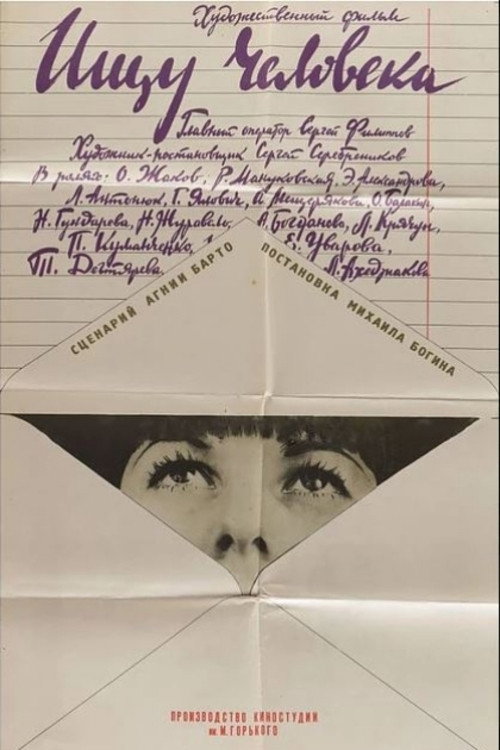 Художественный фильм
Ищу человека
Главный оператор Сергей Филиппов
Художник-постановщик Сергей Серебреников
В ролях: О. Жаков, Р. Мануковская, Э. Александрова,
Л. Антонюк, Г. Ялович, И. Мещерякова, О. Балакин,
Н. Гундарева, Н. Журавель, А. Богданова, Л. Крячун,
П. Кузьмиченко, Е. Уварова,
Т. Дегтярева, Л. Ахеджакова
СЦЕНАРИЙ АГНИИ БАРТО
ПОСТАНОВКА МИХАИЛА БОГИНА
ПРОИЗВОДСТВО КИНОСТУДИИ
им. М. ГОРЬКОГО